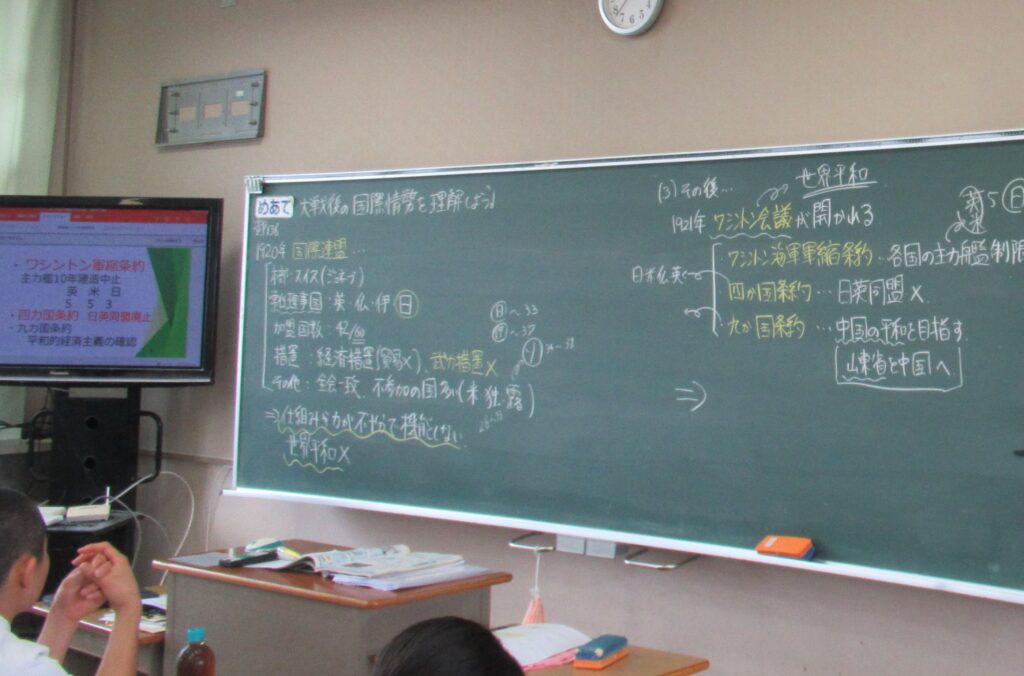 ・ワシントン軍縮条約
主力艦10年建造中止
英 米 日
5 5 3
・四カ国条約 日英同盟廃止
・九カ国条約
平和的経済主義の確認
めあて 大戦後の国際情勢を理解しよう
1920年 国際連盟…
本部:スイス(ジュネーブ)
常任理事国:英・仏・伊・日
加盟国数:42
日~33
独~37
措置:経済措置(貿易×)、武力措置×
その他:全会一致、不参加の国あり(米独露)
⇒仕組みや力が不十分で機能しない
世界平和×
(3)その後…
世界平和
1921年 ワシントン会議が開かれる
ワシントン海軍軍縮条約…各国の主力艦制限
日米仏英
四か国条約…日英同盟×
九か国条約…中国の平和を目指す
山東省を中国へ
⇒
5 日
7 6 5